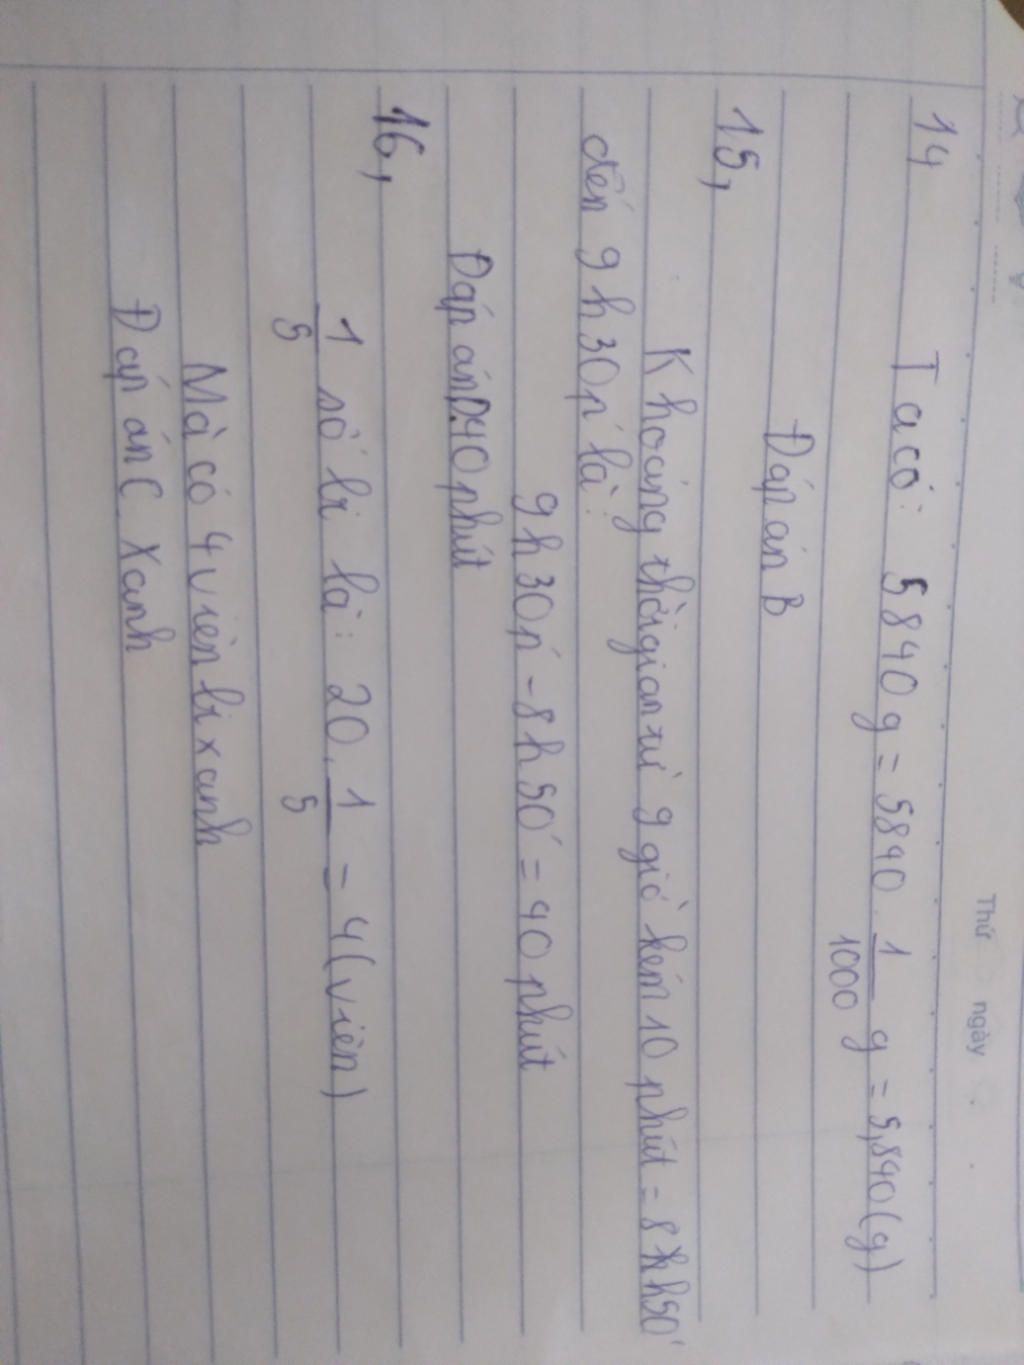 Thứ ngày
14, Ta có: 5840g = 5840. 1/1000 g = 5,840(g)
Đáp án B
15, Khoảng thời gian từ 9 giờ kém 10 phút = 8h50'
đến 9h30p' là:
9h30p' - 8h50' = 40 phút
Đáp án D.40 phút
16, 1/5 số bi là: 20. 1/5 = 4(viên)
Mà có 4 viên bi xanh
Đáp án C. Xanh